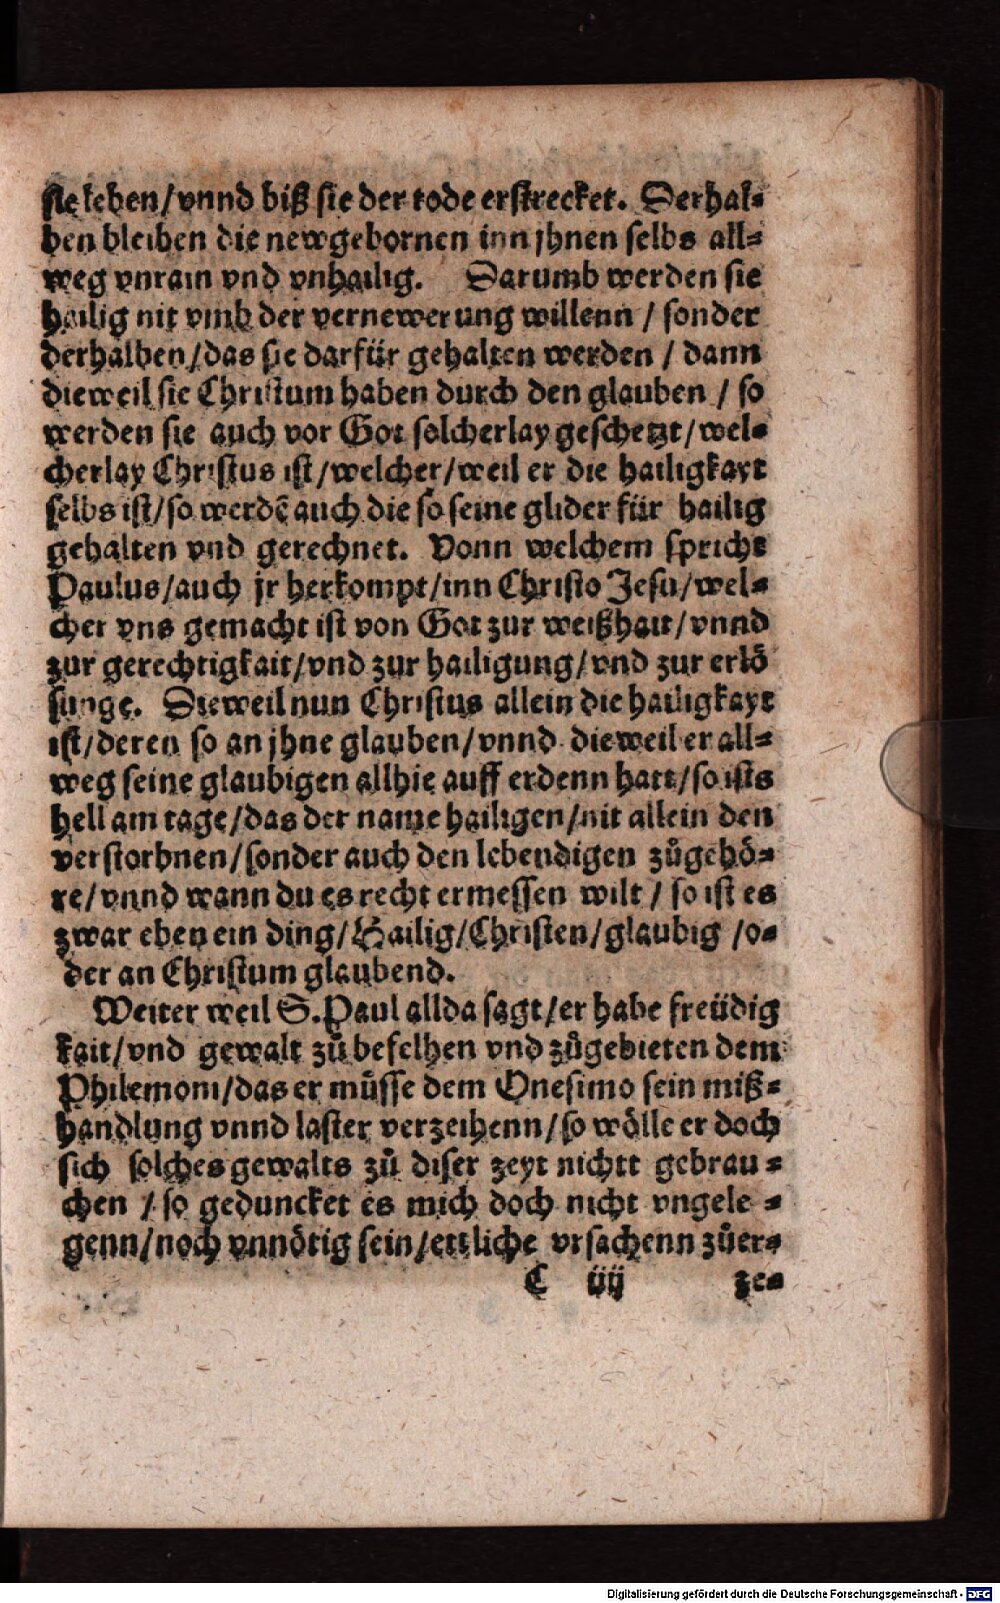 sie leben/vnnd biß sie der tode erstrecket. Derhal⸗
ben bleiben die newgebornen inn jhnen selbs all⸗
weg vnrain vnd vnhailig. Darumb werden sie
hailig nit vmb der vernewerung willenn / sonder
derhalben/das sie darfür gehalten werden / dann
dieweil sie Christum haben durch den glauben / so
werden sie auch vor Got solcherlay geschetzt/wel⸗
cherlay Christus ist/welcher/weil er die hailigkayt
selbs ist/so werdē auch die so seine glider für hailig
gehalten vnd gerechnet. Vonn welchem spricht
Paulus/auch jr herkompt/inn Christo Jesu/wel⸗
cher vns gemacht ist von Got zur weißhait/vnnd
zur gerechtigkait/vnd zur hailigung/vnd zur erlö
sunge. Dieweil nun Christus allein die hailigkayt
ist/deren so an jhne glauben/vnnd dieweil er all⸗
weg seine glaubigen allhie auff erdenn hatt/so ists
hell am tage/das der name hailigen/nit allein den
verstorbnen/sonder auch den lebendigen zůgehö⸗
re/vnnd wann du es recht ermessen wilt / so ist es
zwar eben ein ding/Hailig/Christen/glaubig /o⸗
der an Christum glaubend.
Weiter weil S.Paul allda sagt/er habe freüdig
kait/vnd gewalt zů befelhen vnd zůgebieten dem
Philemoni/das er müsse dem Onesimo sein miß⸗
handlung vnnd laster verzeihenn/so wölle er doch
sich solches gewalts zů diser zeyt nichtt gebrau⸗
chen / so geduncket es mich doch nicht vngele⸗
genn/noch vnnötig sein/ettliche vrsachenn zůer⸗
C iiij ze⸗
Digitalisierung gefördert durch die Deutsche Forschungsgemeinschaft - DFG